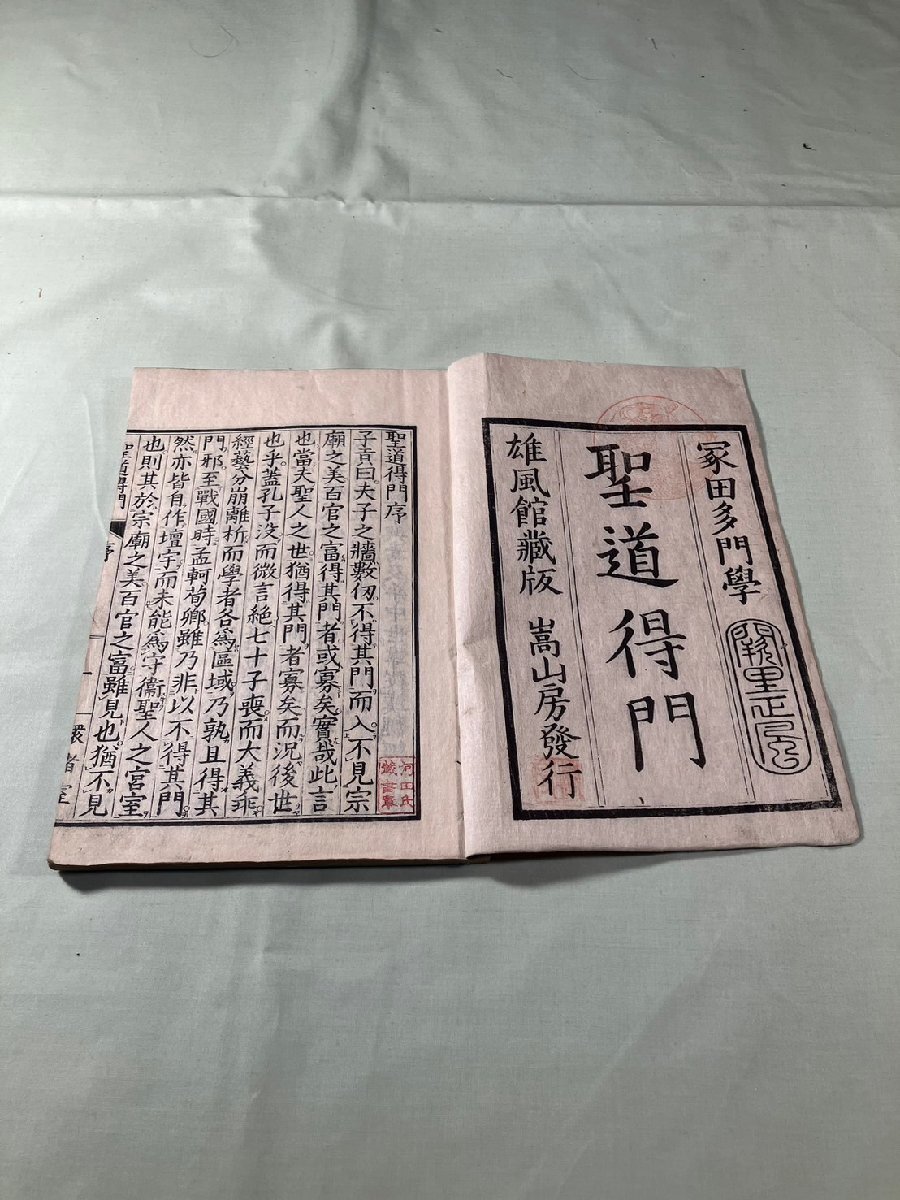 冢田多門學
聖道得門
雄風館藏版 嵩山房發行
聖道得門序
子貢曰夫子之牆數仞不得其門而入不見宗
廟之美百官之富得其門者或寡矣實哉此言
也當夫聖人之世猶得其門者寡矣而況後世
也乎蓋孔子沒而微言絕七十子喪而大義乖
經藝分崩離析而學者各爲區域乃孰且得其
門邪至戰國時孟軻荀卿雖乃非以不得其門
然亦皆自作壇宇而未能爲守衞聖人之宮室
也則其於宗廟之美百官之富雖見也猶不見
聖道得門 序